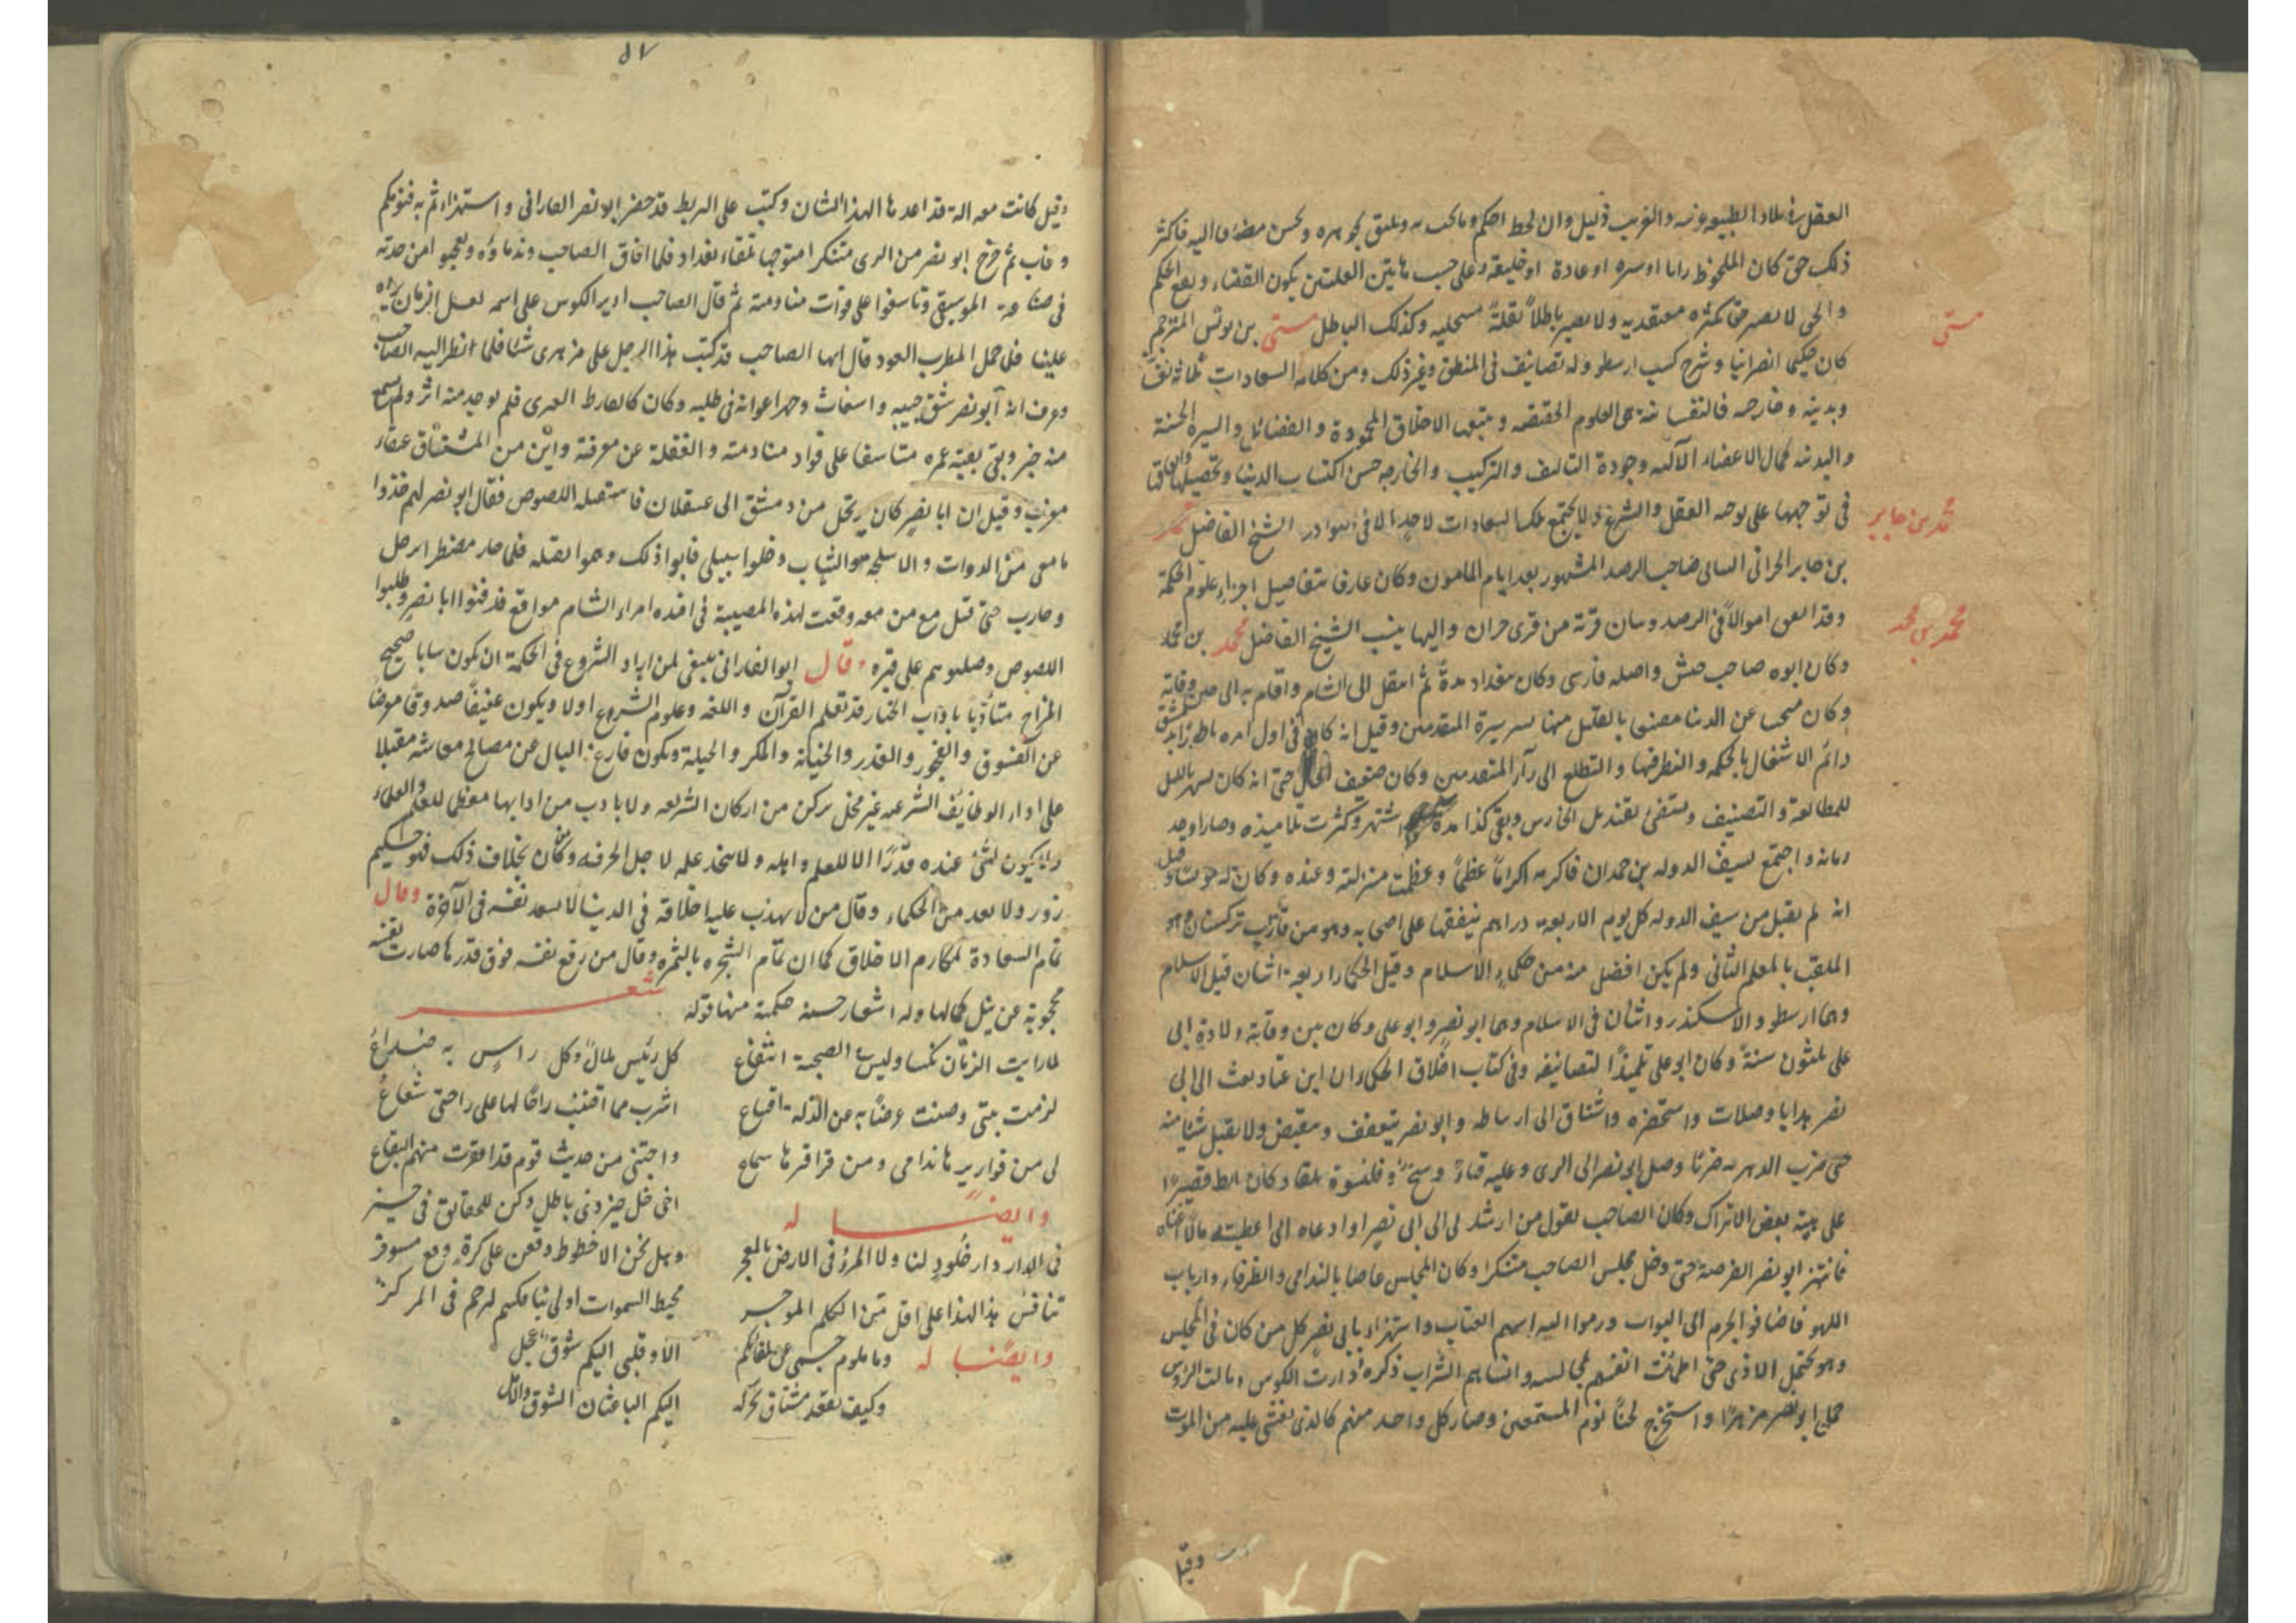 العقل في بلاد الطبيعة وزنه والغريب ذليل وان لحظ احكم وما كتب به وعلق بجوهره وحسن مضاف اليه فاكثر
ذلك حتى كان الملحوظ رايا او سره او عادة او خليقة وعلى حسب هاتين العلتين يكون القضاء ويقع الحكم
والحق لا يصير حقا بكثره معتقديه ولا يصير باطلاً بقلة منتحليه وكذلك الباطل متى بن يونس المترجم
متى
كان حكيما نصرانيا وشرح كتب ارسطو وله تصانيف في المنطق وغير ذلك ومن كلامه السعادات ثلاثة نفسانية
وبدنية وخارجه فالنفسانية هي العلوم الحقيقه ويتبعها الاخلاق المحمودة والفضائل والسيره الحسنة
والبدنيه كمال الاعضاء الآلية وجودة التاليف والتركيب والخارجه حسن اكتساب الدنيا وتحصيلها وانفاقها
في توجهها على وجه العقل والشرع ولا يجتمع تلك السعادات لاحدٍ الا في النوادر الشيخ الفاضل محمد
محمد بن جابر
بن جابر الحراني البتاني صاحب الرصد المشهور بعد ايام المامون وكان عارفا بتفاصيل اجزاء علوم الحكمة
وقد انفق اموالاً في الرصد وبتان قرية من قرى حران واليها ينسب الشيخ الفاضل محمد بن محمد
محمد بن محمد
وكان ابوه صاحب جيش واصله فارسى وكان ببغداد مدة ثم انتقل الى الشام واقام به الى حين وفاته
وكان متجنبا عن الدنيا مقتنعا بالقليل منها يسير سيرة المتقدمين وقيل انه كان في اول امره ناطورا بدمشق
دائم الاشتغال بالحكمه والنظر فيها والتطلع الى رآر المتقدمين وكان ضعيف الحال حتى انه كان يسهر بالليل
للمطالعة والتصنيف ويستضئ بقنديل الحارس وبقى كذا مدة ثم اشتهر وكثرت تلاميذه وصار اوحد
زمانه واجتمع بسيف الدوله بن حمدان فاكرمه اكراماً عظيماً وعظمت منزلته وعنده وكان له مؤنسا وقيل
انه لم يقبل من سيف الدوله كل يوم الا اربعه دراهم ينفقها على اصحابه وهو من فاراب تركستان وهو
الملقب بالمعلم الثاني ولم يكن افضل منه من حكماء الاسلام وقيل الحكماء اربعة اثنان قبل الاسلام
وهما ارسطو والاسكندر واثنان في الاسلام وهما ابو نصر وابو على وكان بين وفاته ولادة ابى
على ثلثون سنةً وكان ابو على تلميذًا لتصانيفه وفى كتاب اخلاق الحكماء ان ابن عباد بعث الى ابى
نصر هدايا وصلات واستحضره واشتاق الى ارتباطه وابو نصر يتعفف وينقبض ولا يقبل شيئا منه
حتى ضرب الدهر به ضربًا وصل ابى نصر الى الرى وعليه قباءٌ وسخٌ و قلنسوة بلقاء وكان ابط قصيرًا
على هيئة بعض الاتراك وكان الصاحب يقول من ارشدنى الى ابى نصر او ادعاه الى اعطيته مالًا اغناه
فانتهز ابو نصر الفرصة حتى دخل مجلس الصاحب متنكرا وكان المجلس غاصا بالندامى والظرفاء وارباب
اللهو فاضافوا الجرم الى البواب ورموا اليه اسهم العتاب واستهزاء بابى نصر كل من كان في المجلس
وهو يحتمل الاذى حتى اطمأنت انفسهم لمجالسه وانساهم الشراب ذكره ودارت الكوس ومالت الرؤس
حمل ابو نصر مزهرًا واستخرج لحنًا نوم المستمعين وصار كل واحد منهم كالذى يغشى عليه من الموت
وقيل
٥٧
وقيل كانت معه الة قد اعدها لهذا الشان وكتب على البربط قد حضر ابو نصر الفارابى واستهزأتم به فنومكم
وغاب ثم خرج ابو نصر من الرى متنكرا متوجها تلقاء بغداد فلما افاق الصاحب وندماؤه وتعجبوا من حدته
فى صناعة الموسيقى وتاسفوا على فوات منادمته ثم قال الصاحب ادير الكوس على اسمه لعل الزمان يرده
علينا فلما حمل المطرب العود قال ايها الصاحب قد كتب هذا الرجل على مزهرى شيئا فلما انظر اليه الصاحب
وعرف انه ابو نصر شق جيبه واستغاث وجهز اعوانه فى طلبه وكان كالقارظ العنزى فلم يوجد منه اثر ولم يسمع
منه خبر وبقى بقية عمره متاسفا على فواد منادمته والغفلة عن معرفته واين من المشتاق عنقاء
مغرب وقيل ان ابا نصر كان يرتحل من دمشق الى عسقلان فاستقبله اللصوص فقال ابو نصر لهم خذوا
ما معى من الدواب والاسلحه والثياب وخلوا سبيلى فابوا ذلك وهموا بقتله فلما صار مضطرا ترجل
وحارب حتى قتل مع من معه ووقعت لهذه المصيبة فى افئده امراء الشام مواقع فدفنوا ابا نصر وطلبوا
اللصوص وصلبوهم على قبره وقال ابو الفارابى ينبغى لمن اراد الشروع فى الحكمة ان يكون شابا صحيح
المزاج متأدبا باداب الخيار قد تعلم القرآن واللغه وعلوم الشروع اولا ويكون عفيفًا صدوقًا معرضًا
عن الفسوق والفجور والغدر والخيانة والمكر والحيلة ويكون فارغ البال عن مصالح معاشه مقبلا
على اداء الوظائف الشرعيه غير مخل بركن من اركان الشريعه ولا بادب من ادابها معظما للعلم والعلماء
ولا يكون لشئ عنده قدرًا الا للعلم واهله ولا يتخذ علمه لاجل الحرفه ومن كان بخلاف ذلك فهو حكيم
زور ولا يعد من الحكماء وقال من لا يهذب عليه اخلاقه فى الدينا لا يسعد نفسه فى الآخرة وقال
تمام السعادة بمكارم الاخلاق كما ان تمام الشجره بالثمره وقال من رفع نفسه فوق قدرها صارت نفسه
محجوبة عن نيل كمالها وله اشعار حسنه حكمية منها قوله
شعر
لما رايت الزمان نكسا وليس الصحبة انتفاع	كل رئيس به ملال وكل راسٍ به صداعٌ
لزمت بيتى وصنت عرضًا به عن الذلة اقتناع	اشرب مما اقتنيت راحًا لها على راحتى شعاعٌ
لى من قوارير ها ندامى ومن قراقرها سماع	واجتنى من حديث قوم قد اقفرت منهم البقاع
وايضًا له
اخى خل حيز ذى باطلٍ وكن للحقايق فى حيز
فى الدار دار خلودٍ لنا ولا المرؤ فى الارض بالمعجز	وهل نحن الا خطوط وقعن على كرةٍ وقع مستوفز
تنافس هذا لهذا على اقل من الكلم الموجز	محيط السموات اولى بنا فكم لرحم فى المركزٌ
وايضًا له
وما ملوم جسمى عن لقائكم	الا وقلبى اليكم شوقٌ عجل
وكيف يقعد مشتاق يحركه	اليكم الباعثان الشوق والامل